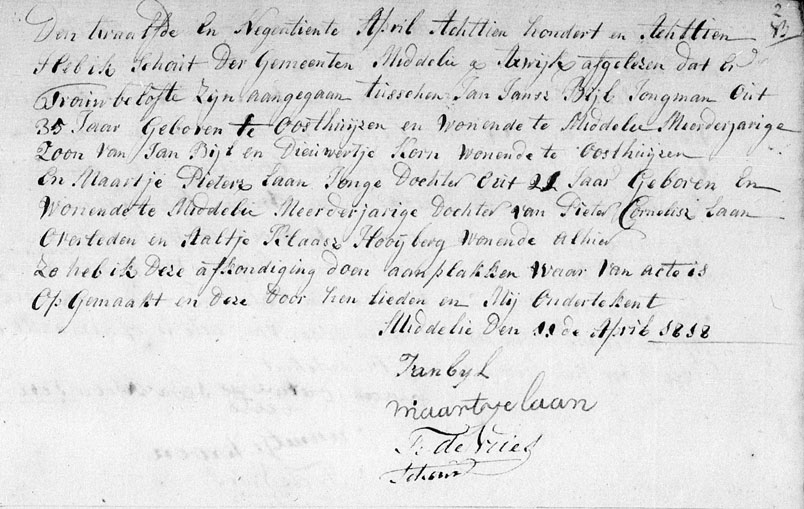 Den twaalfde En Negentiente April Achttien hondert en Achttien
Heb ik Schout Der Gemeenten Middelie & Axwijk afgelezen dat Er
Trouwbelofte Zijn aangegaan tusschen Jan Jansz Bijl Jongman Out
35 Jaar Geboren te Oosthuijzen en Wonende te Middelie Meerderjarige
Zoon van Jan Bijl en Dieuwertje Korn Wonende te Oosthuijzen
En Maartje Pieters Laan Jonge Dochter Out Jaar Geboren En
Wonende te Middelie Meerderjarige Dochter van Pieter Cornelisz Laan
Overleden en Aaltje Klaasz Hooijberg Wonende Alhier
Zo heb ik Deze afkondiging doen aanplakken Waar Van acte is
Op Gemaakt en Deze Door hen lieden en Mij Ondertekent
Middelie Den 11 de April 1818
Jan byl
maartye laan
de Vries
Schout